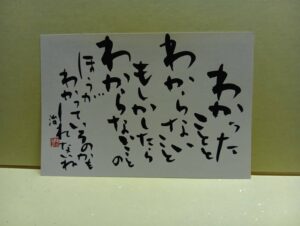 わかった
ことと
わからない
こと
もしかしたら
わからないことの
ほうが
わかっているのかも
しれないね